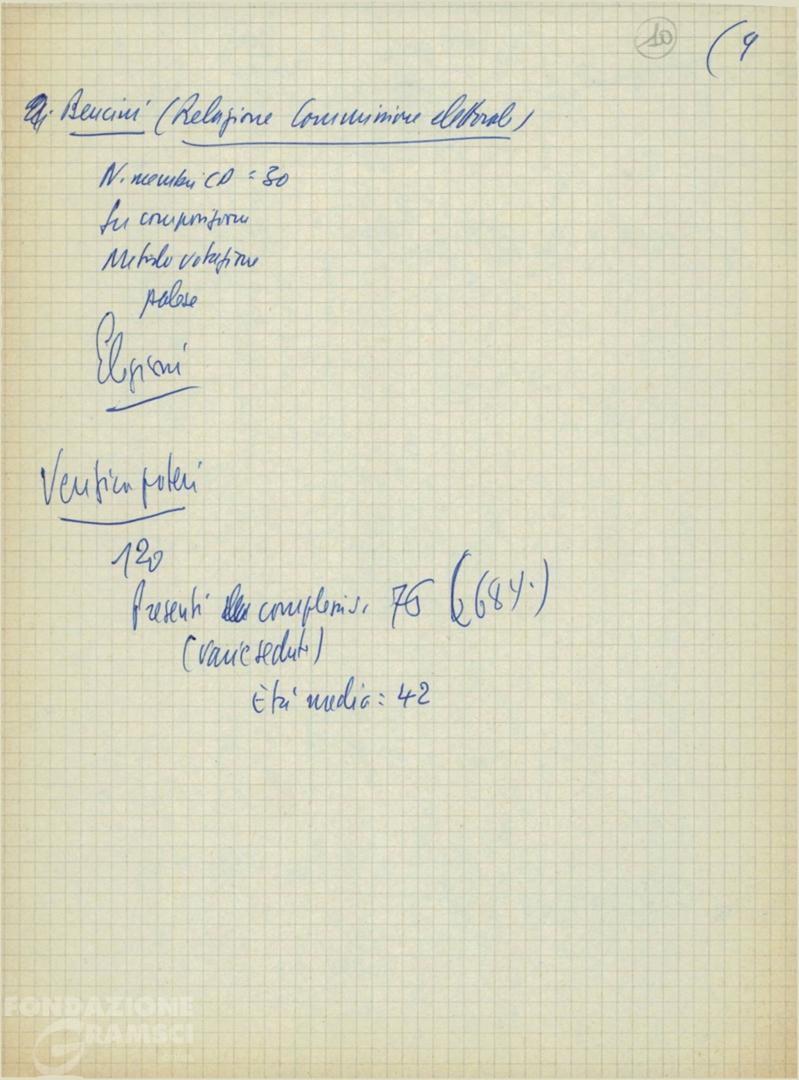 10
(9
Bencini (Relazione Commissione elettorale)
N. membri CD = 30
Su composizione
Metodo votazione
palese
Elezioni
Verifica poteri
120
Presenti complessivi 76 (68%)
(varie sedute)
Età media: 42
FONDAZIONE
GRAMSCI